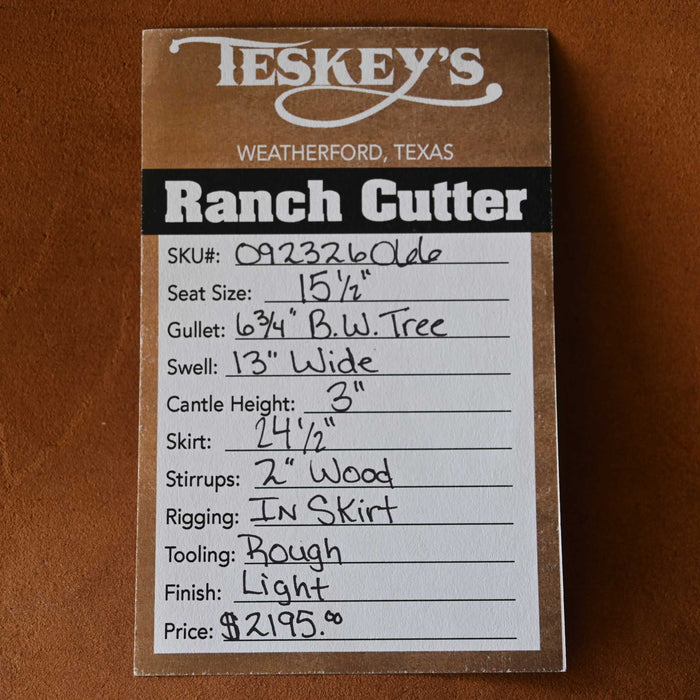 TESKEY'S
WEATHERFORD, TEXAS
Ranch Cutter
SKU#: 092326066
Seat Size: 15 1/2"
Gullet: 6 3/4" B.W. Tree
Swell: 13" Wide
Cantle Height: 3"
Skirt: 24 1/2"
Stirrups: 2" Wood
Rigging: IN SKirt
Tooling: Rough
Finish: Light
Price: $2195.00